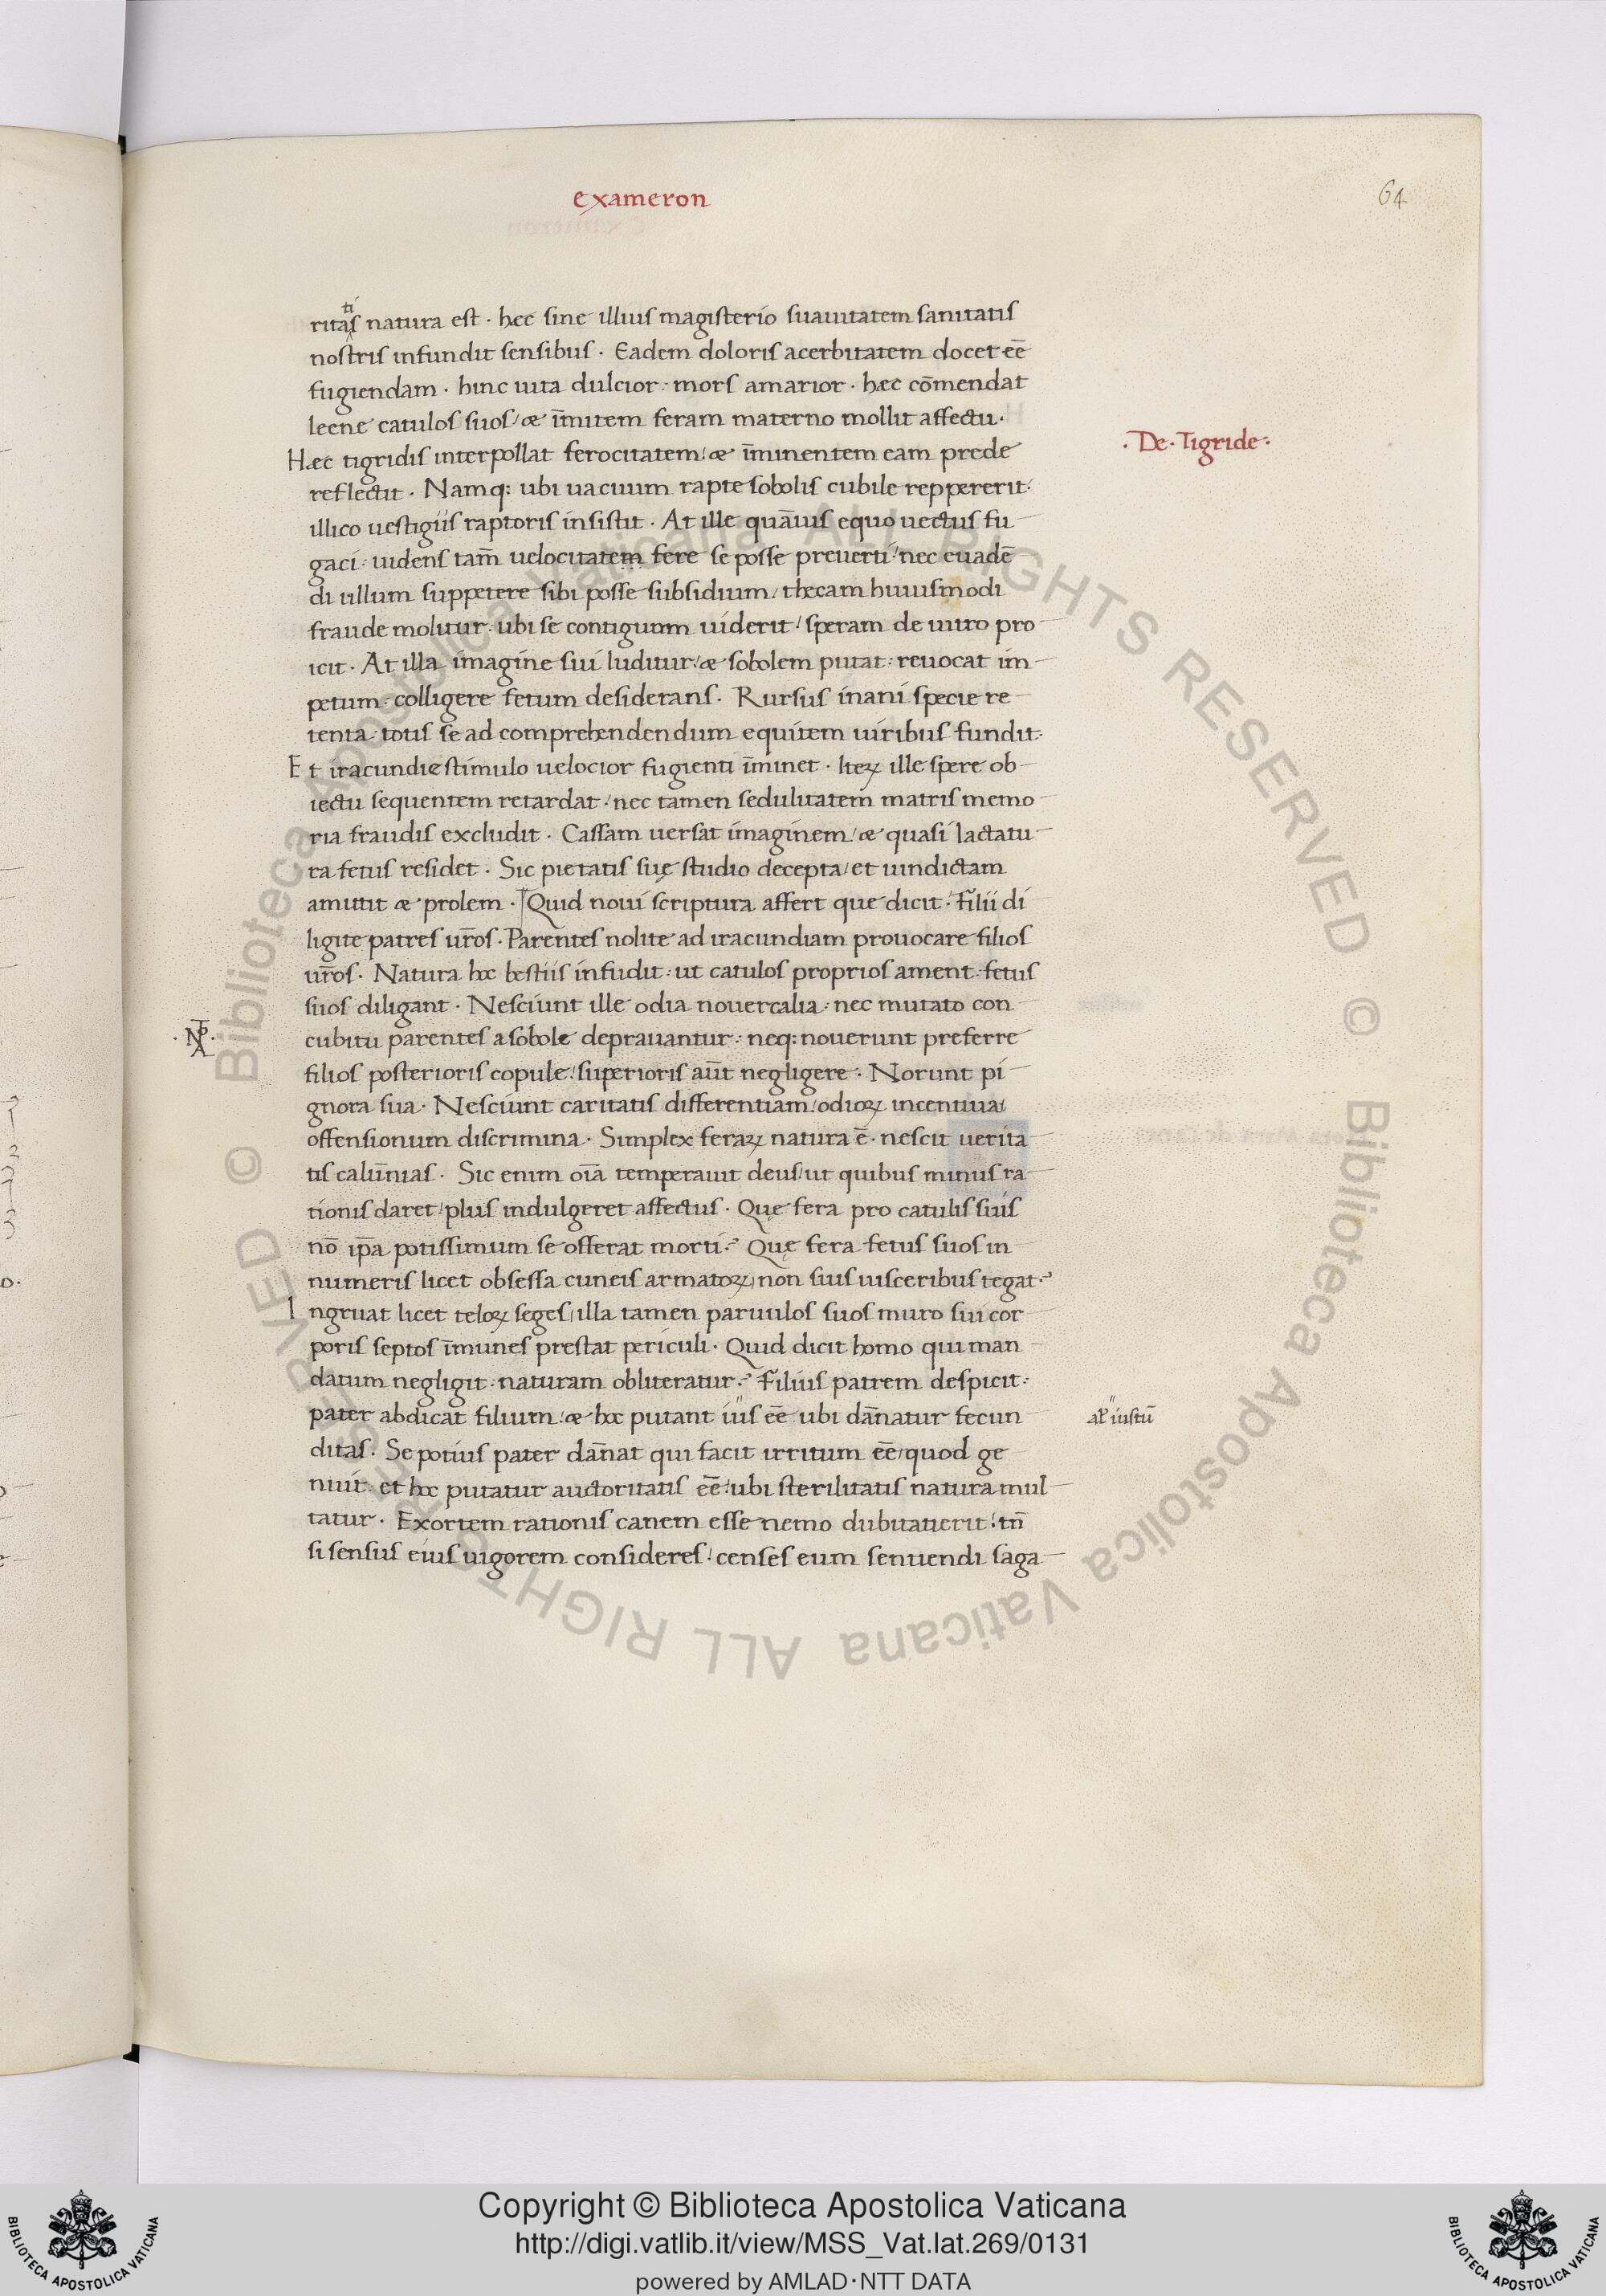 exameron
64
ritatis natura est · hec sine illius magisterio suauitatem sanitatis
nostris infundit sensibus · Eadem doloris acerbitatem docet eē
fugiendam · hinc uita dulcior: mors amarior · hæc cōmendat
leene catulos suos / æ īmitem feram materno mollit affectu ·
Hæc tigridis interpollat ferocitatem / æ īminentem eam prede
· De · Tigride ·
reflectit · Namq: ubi uacuum rapte sobolis cubile reppererit:
illico uestigiis raptoris insistit · At ille quāuis equo uectus fu
gaci: uidens tam̄ uelocitatem fere se posse preuerti / nec euadē
di ullum suppetere sibi posse subsidium / thecam huiusmodi
fraude molitur: ubi se contiguum uiderit / speram de uitro pro
icit · At illa imagine sui luditur / æ sobolem putat: reuocat im
petum: colligere fetum desiderans · Rursus inani specie re
tenta: totis se ad comprehendendum equitem uiribus fundit:
Et iracundiæ stimulo uelocior fugienti īminet · Iteꝝ ille spere ob
iectu sequentem retardat / nec tamen sedulitatem matris memo
ria fraudis excludit · Cassam uersat imaginem / æ quasi lactatu
ra fetus residet · Sic pietatis suę studio decepta / et uindictam
amittit æ prolem · Quid noui scriptura affert que dicit · Filii di
ligite patres ur̄os · Parentes nolite ad iracundiam prouocare filios
ur̄os · Natura hoc bestiis infudit: ut catulos proprios ament: fetus
suos diligant · Nesciunt ille odia nouercalia: nec mutato con
cubitu parentes a sobole deprauantur: neq: nouerunt preferre
filios posterioris copule / superioris aūt negligere · Norunt pi
gnora sua · Nesciunt caritatis differentiam / odioꝝ incentiua /
offensionum discrimina · Simplex feraꝝ natura ē · nescit uerita
tis calūnias · Sic enim oīa temperauit deus / ut quibus minus ra
tionis daret / plus indulgeret affectus · Quę fera pro catulis suis
nō ip̄a potissimum se offerat morti? Quę fera fetus suos in
numeris licet obsessa cuneis armatoꝝ / non suis uisceribus tegat?
Ingruat licet teloꝝ seges / illa tamen paruulos suos muro sui cor
poris septos īmunes prestat periculi · Quid dicit homo qui man
datum negligit: naturam obliteratur? Filius patrem despicit:
pater abdicat filium / æ hoc putant ius eē ubi dān̄atur fecun
al' iustū
ditas · Se potius pater dān̄at qui facit irritum eē / quod ge
nuit: et hoc putatur auctoritatis eē / ubi sterilitatis natura mul
tatur · Exortem rationis canem esse nemo dubitauerit / tn̄
si sensus eius uigorem consideres / censes eum sentiendi saga
Copyright © Biblioteca Apostolica Vaticana
http://digi.vatlib.it/view/MSS_Vat.lat.269/0131
powered by AMLAD·NTT DATA
BIBLIOTECA APOSTOLICA VATICANA
BIBLIOTECA APOSTOLICA VATICANA
© Biblioteca Apostolica Vaticana ALL RIGHTS RESERVED © Biblioteca Apostolica Vaticana ALL RIGHTS RESERVED